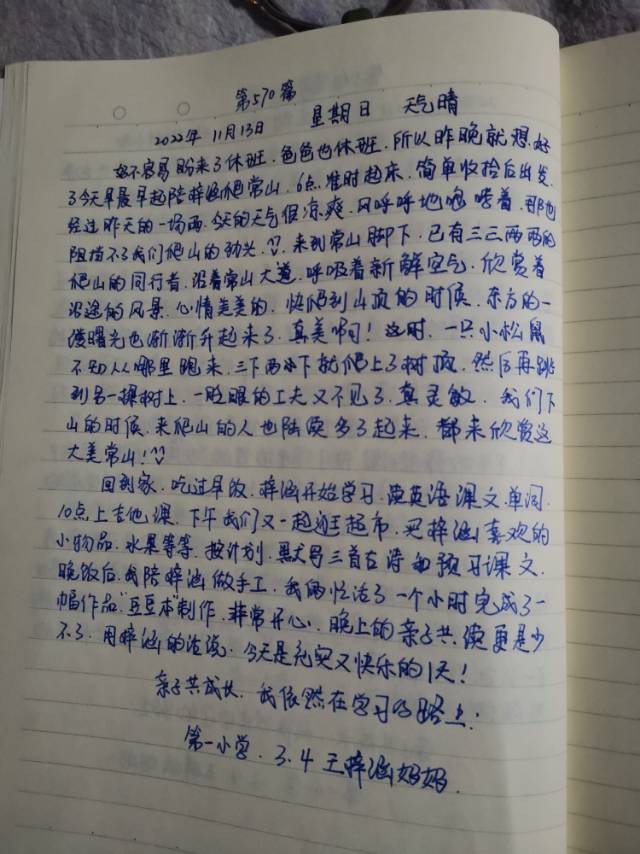 第570篇
2022年 11月13日 星期日 天气晴
好不容易盼来了休班.爸爸也休班.所以昨晚就想好
了今天早晨早起陪梓涵爬常山.6点.准时起床.简单收拾后出发.
经过昨天的一场雨.今天的天气很凉爽.风呼呼地响着.那也
阻挡不了我们爬山的劲头.来到常山脚下.已有三三两两的
爬山的同行者.沿着常山大道.呼吸着新鲜空气.欣赏着
沿途的风景.心情美美的.快爬到山顶的时候.东方的一
缕曙光也渐渐升起来了.真美啊!这时.一只小松鼠
不知从哪里跑来.三下两下就爬上了树顶.然后再跳
到另一棵树上.一眨眼的工夫又不见了.真灵敏.我们下
山的时候.来爬山的人也陆续多了起来.都来欣赏这
大美常山!
回到家.吃过早饭.梓涵开始学习.读英语课文.单词.
10点上吉他课.下午我们又一起逛超市.买梓涵喜欢的
小物品.水果等等.按计划.默写三首古诗和预习课文.
晚饭后.我陪梓涵做手工.我俩忙活了一个小时完成了一
幅作品"豆豆本"制作.非常开心.晚上的亲子共读更是少
不了.用梓涵的话说.今天是充实又快乐的1天!
亲子共成长.我依然在学习的路上.
第一小学.3.4 王梓涵妈妈.